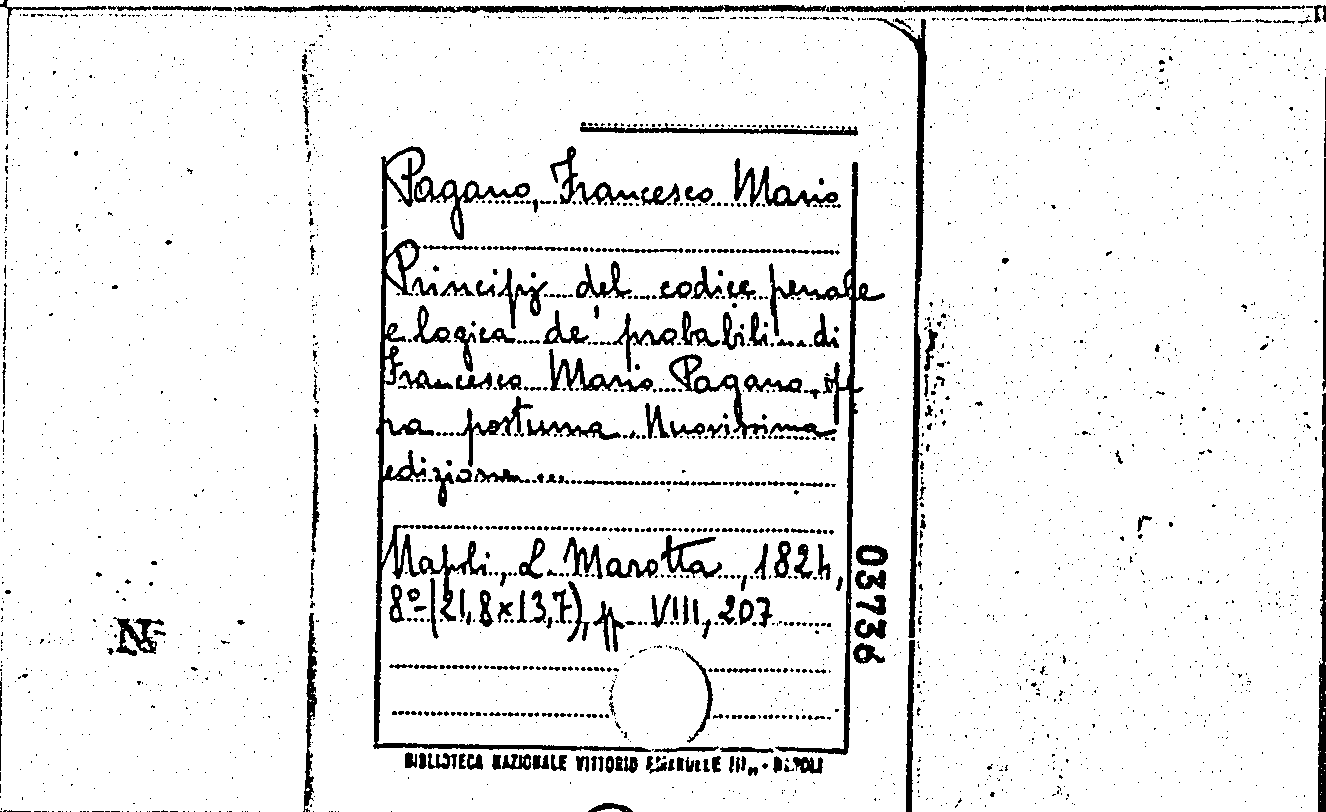 Pagano, Francesco Mario
Principj del codice penale
e logica de' probabili... di
Francesco Mario Pagano, ope
ra postuma. Nuovissima
edizione...
Napoli, L. Marotta, 1824,
8°-(21,8x13,7), pp. VIII, 207
03736
BIBLIOTECA NAZIONALE VITTORIO EMANUELE III„ - NAPOLI